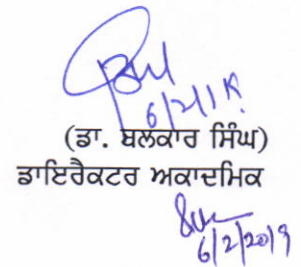 6/2/19
(ਡਾ. ਬਲਕਾਰ ਸਿੰਘ)
ਡਾਇਰੈਕਟਰ ਅਕਾਦਮਿਕ
6/2/2019